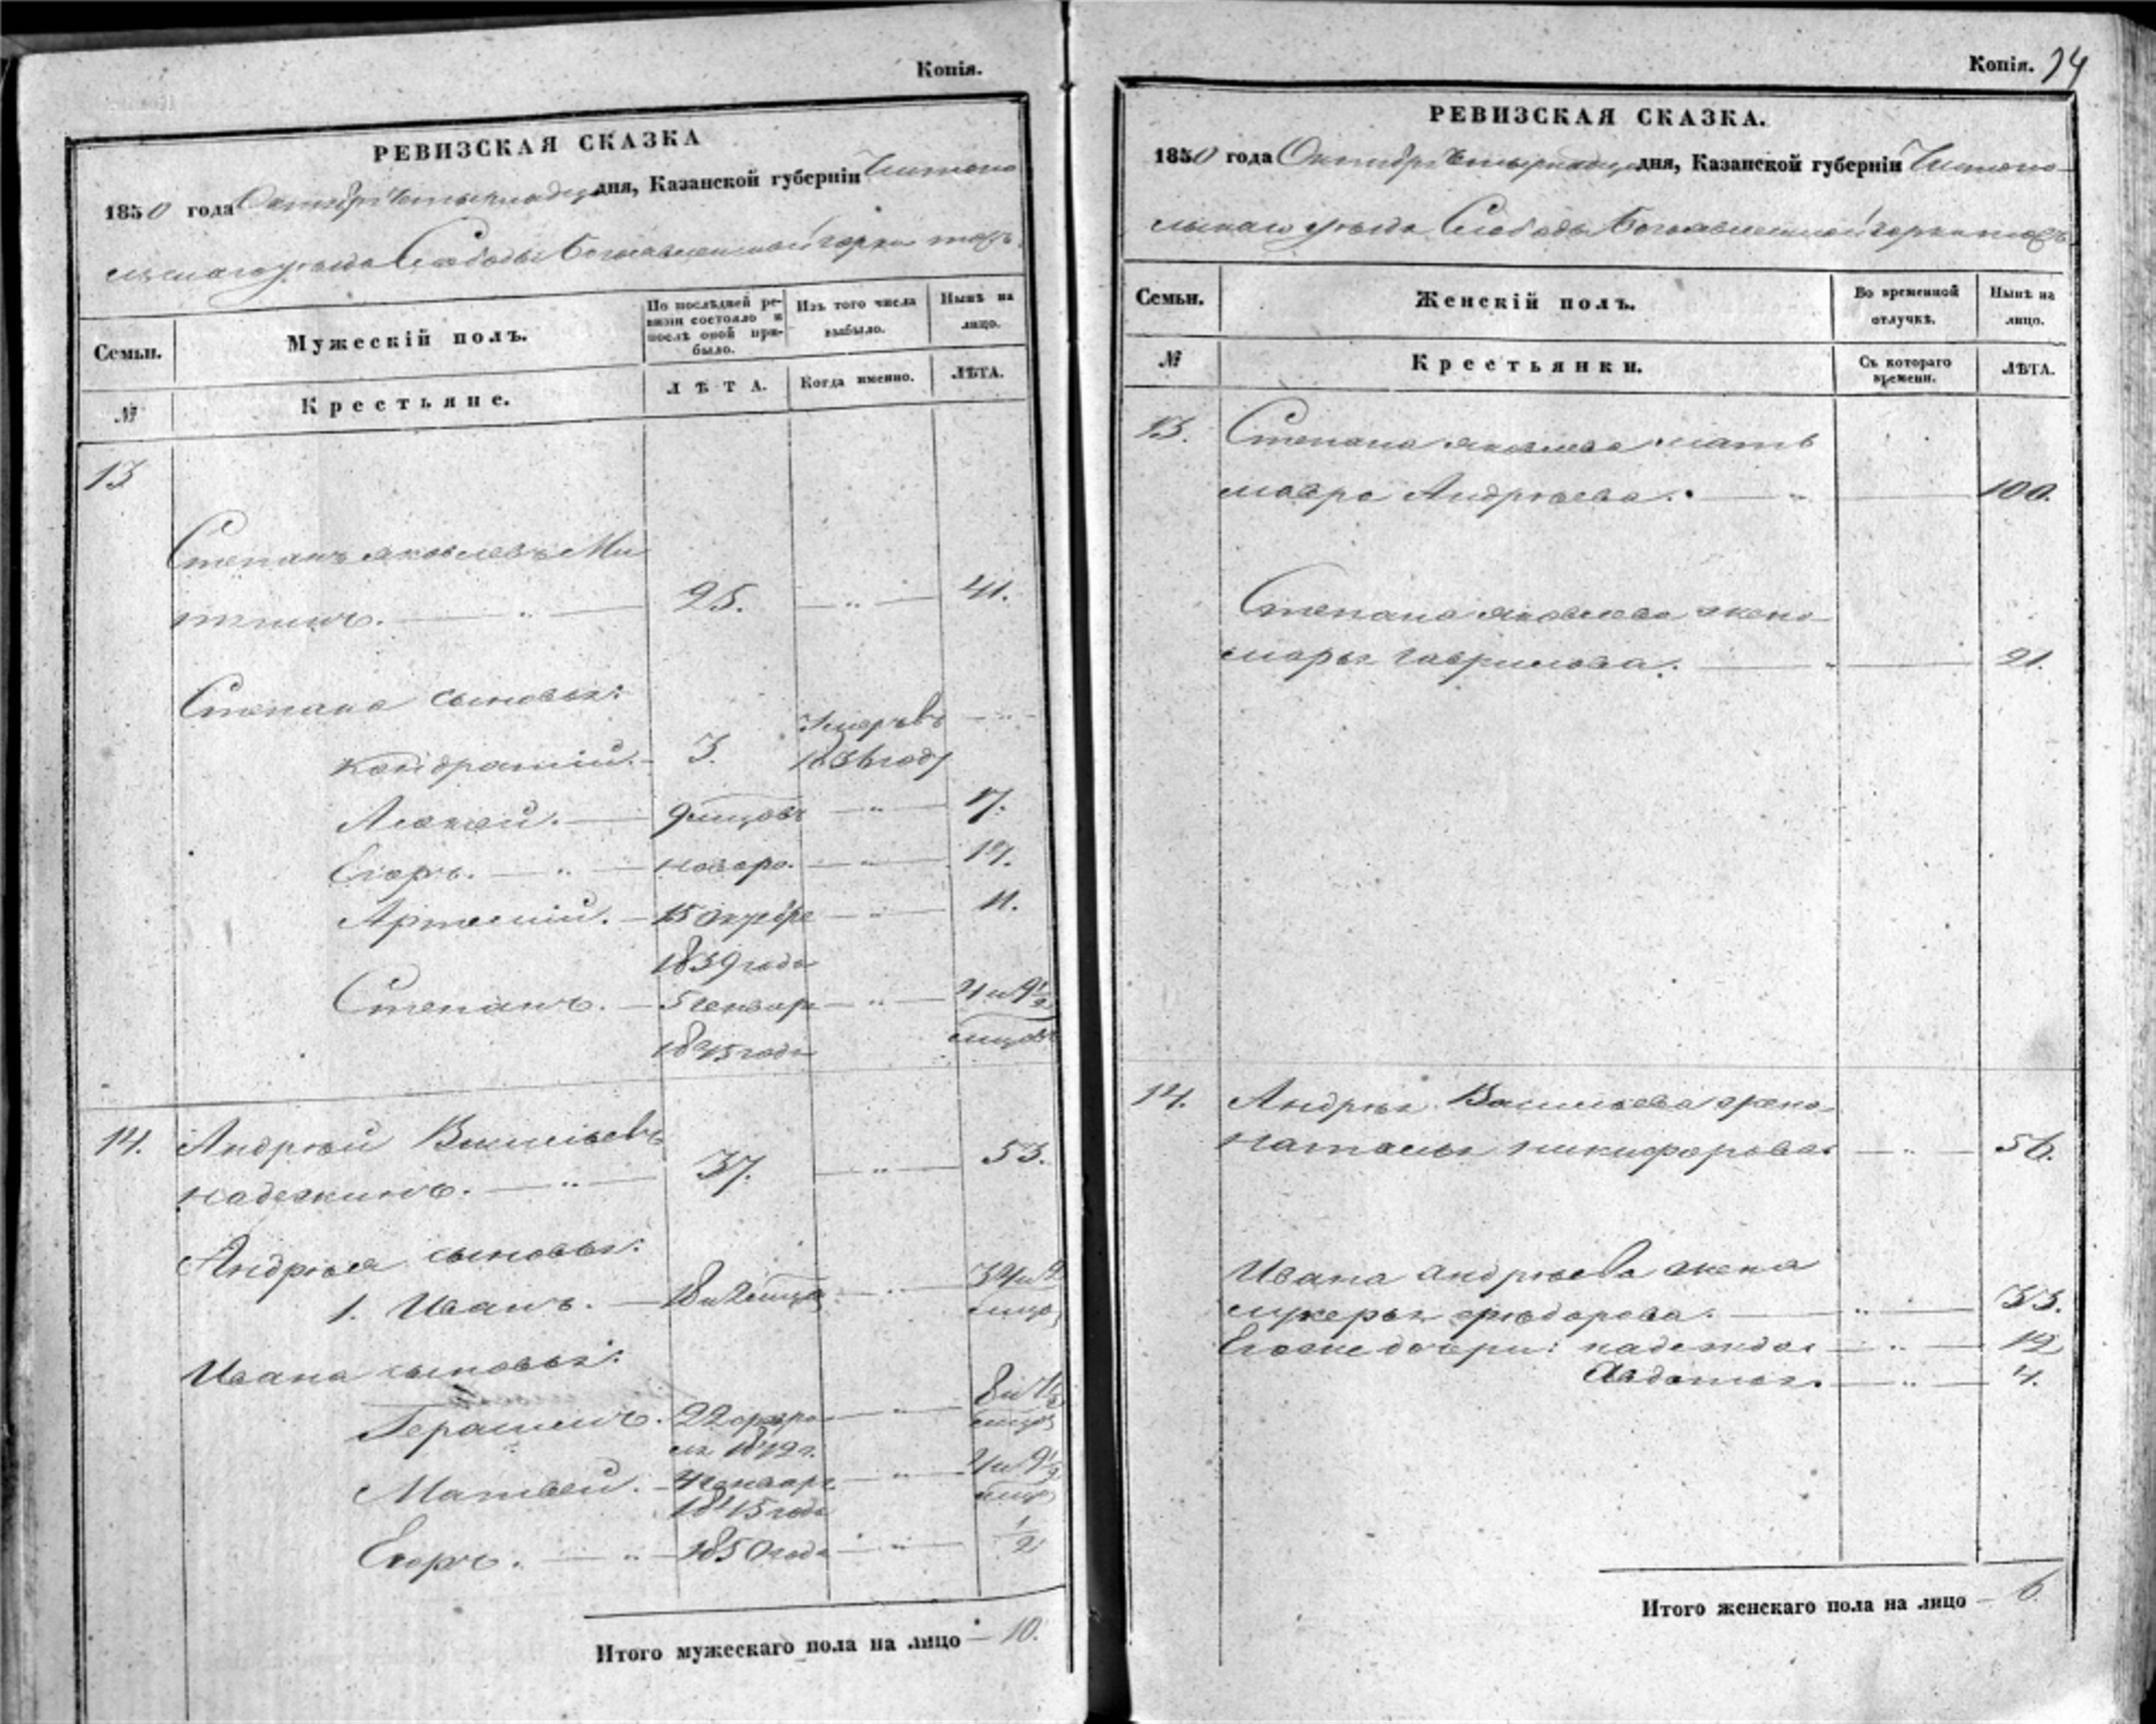 Копія.
РЕВИЗСКАЯ СКАЗКА
1850 года Октября Четырнадца дня, Казанской губерніи Чистопо
льскаго уѣзда Слободы Богоявленской горки тожъ
Семьи.
Мужескій полъ.
По послѣдней ре-
визіи состояло и
послѣ оной при-
было.
Изъ того числа
выбыло.
Нынѣ на
лицо.
№
Крестьяне.
ЛѢТА.
Когда именно.
ЛѢТА.
13
Степанъ Яковлевъ Ми
25. — „ — 41.
Степана сыновья:
Кондратій. — 3. Умеръ въ — „ —
1836 году
Алексѣй. — 9 мцовъ — „ — 17.
Егоръ. — „ — новоро. — „ — 17.
Артемій. — 15 Октября — „ — 11.
1839 года
Степанъ. — 5 генваря — „ — 4 и 9½
1845 года мцовъ
14. Андрей Васильевъ
Надежкинъ. — „ — 37. — „ — 53.
Андрея сыновья:
1. Иванъ. — 18 и 2 мца — „ — 34 и 2
мца
Ивана сыновья:
Герасимъ. 22 февра — „ —
ля 1842 г. мцо
Матвей. — 4 генваря — „ — 4 и 9½
1845 года мцо
Егоръ. — „ — 1850 года — „ — ½
Итого мужескаго пола на лицо — 10.
Копія. 14
РЕВИЗСКАЯ СКАЗКА.
1850 года Октября Четырнадца дня, Казанской губерніи Чистопо-
льскаго уѣзда Слободы Богоявленской горки тожъ
Семьи.
Женскій полъ.
Во временной
отлучкѣ.
Нынѣ на
лицо.
№
Крестьянки.
Съ котораго
времени.
ЛѢТА.
13. Степана Яковлева мать
Мавра Андреева. — „ — 100.
Степана Яковлева жена
Марья Гаврилова. — „ —
14. Андрея Васильева жена
Наталья Никифорова — „ — 56.
Ивана Андреева жена
Лукерья Федорова. — „ — 33.
Егоже дочери: Надежда — „ — 12
Авдотья. — „ — 4.
Итого женскаго пола на лицо — 6.